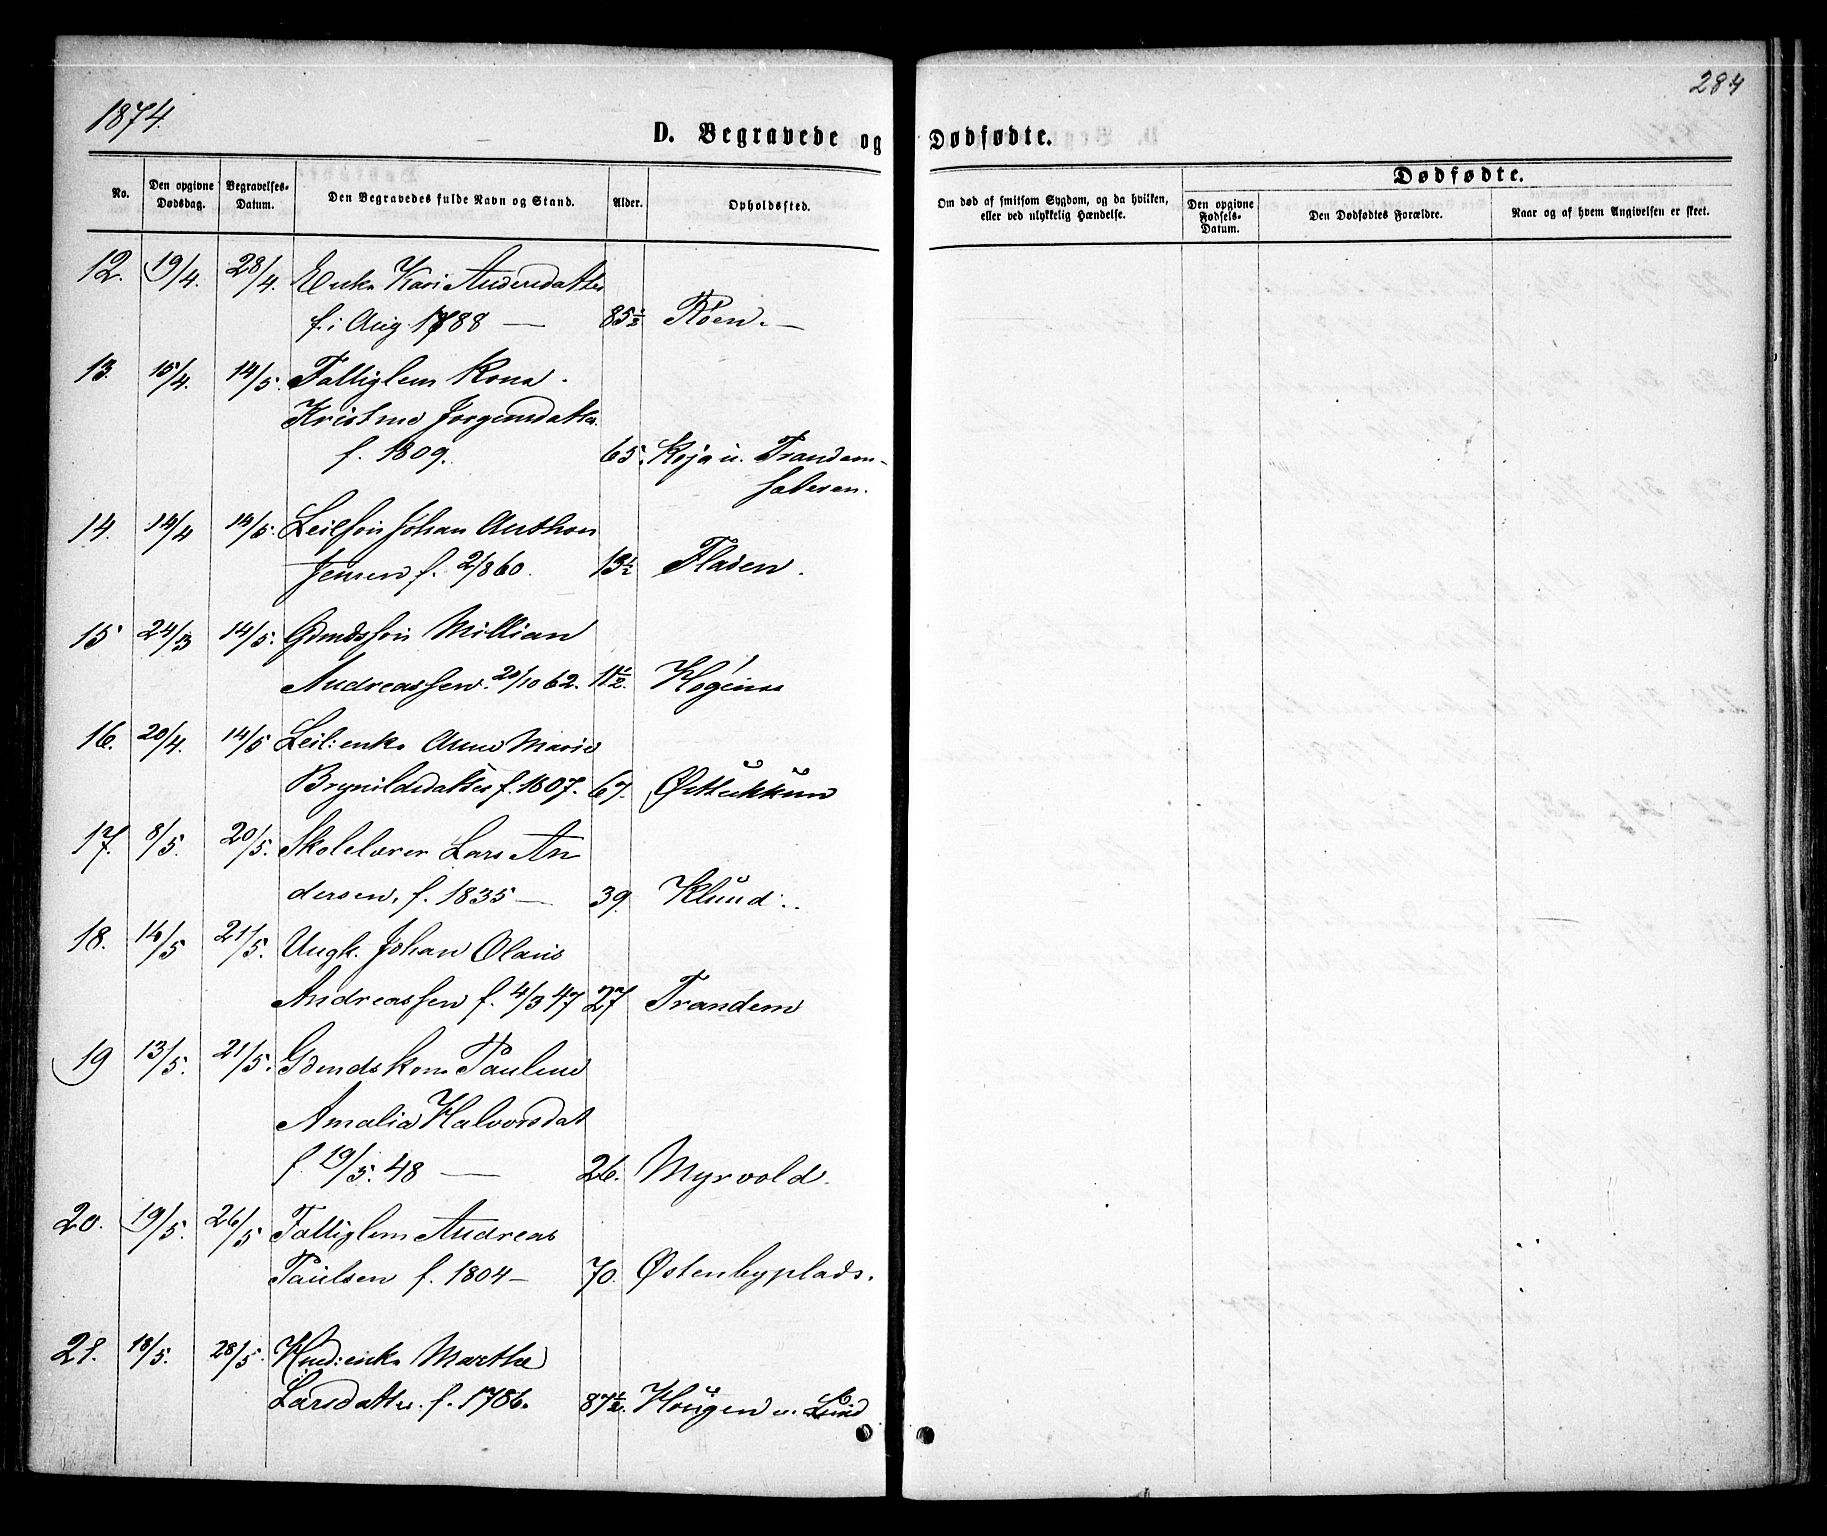 1874.
284
D. Begravede og Dødfødte.
No.
Den opgivne Dødsdag.
Begravelses-Datum.
Den Begravedes fulde Navn og Stand.
Alder.
Opholdssted.
Om død af smitsom Sygdom, og da hvilken,
eller ved ulykkelig Hændelse.
Dødfødte.
Den opgivne Fødsels-Datum.
Den Dødfødtes Forældre.
Naar og af hvem Angivelsen er skeet.
12. 19/4. 28/4. Enke Kari Andersdatter
f. i Aug. 1788 — 85½ Røen. —
13. 15/4. 14/5. Fattiglem Kona
Kristine Jørgensdatter
f. 1809. 65. Koja u. Trandem-
sæteren.
14. 14/4 14/5. Leilfsøn Johan Anthon
Jensen f. 2/8 60. 13½ Fladen.
15 24/3 14/5. Gdmdssøn Millian
Andreassen. 20/10 62. 11½.
16. 20/4. 14/5 Leil: enke Anne Marie
Brynildsdatter f. 1807. 67.
17. 8/5. 20/5. Skolelærer Lars An
dersen, f. 1835 — 39. Klund.
18. 14/5 21/5. Ungk. Johan Olaus
Andreassen f. 4/3 47 27 Trandem
19 13/5. 21/5. Gdmdskone Pauline
Amalia Halvorsdat
f. 19/5. 48 — 26. Myrvold.
20. 19/5. 26/5 Fattiglem Andreas
Paulsen f. 1804 — 70. Østenbyplads.
21. 18/5. 28/5. Husm: enke Marthe
Larsdatter. f. 1786. 87½. Hougen u. Lund